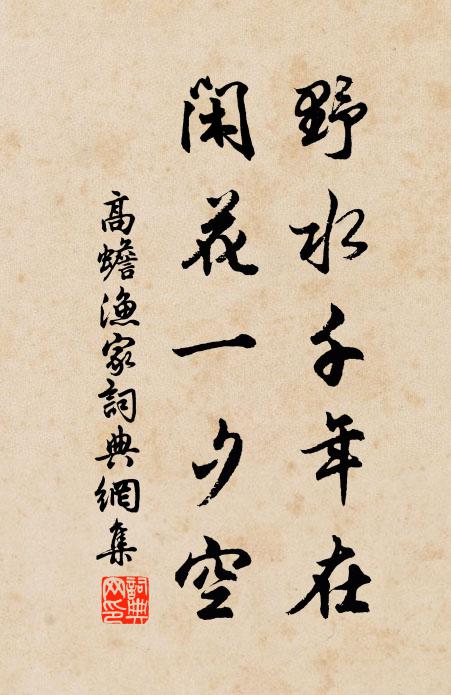 野水千年在
閑花一夕空
高蟾漁家詞典網集
詞典
网印